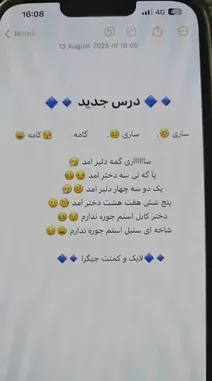 16:08
4G
Notes
13 August 2025 at 16:05
🔷🔹 درس جدید 🔹🔷
ساری 😔. ساری 😔. گامه 😫گامه 😩
سااااااری گمه دلیر امد 🥲
یا که نی سه دختر امد 😔😔
یک دو سه چهار دلیر امد 🥲😔
پنج شش هفت هشت دختر امد 😔🥲
دختر کابل استم جوره ندارم 😔😔
شاخه ای سنبل استم جوره ندارم 😩😔
🔷🔹لایک و کمنت جیگرا 🔹🔷